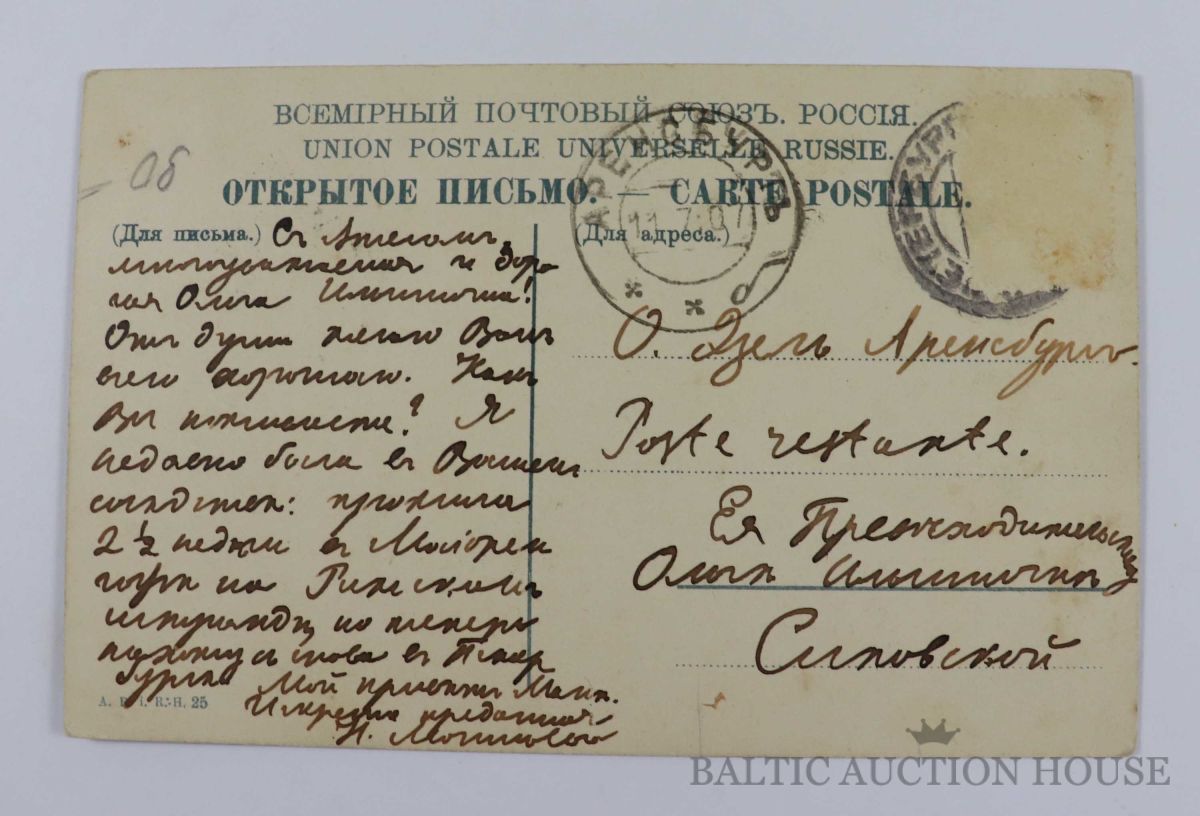 ВСЕМІРНЫЙ ПОЧТОВЫЙ СОЮЗЪ. РОССІЯ.
UNION POSTALE UNIVERSELLE RUSSIE.
ОТКРЫТОЕ ПИСЬМО. — CARTE POSTALE.
Об
АРЕНСБУРГЪ
11.7.07
ПЕТЕРБУРГ
(Для письма.) Съ Ангеломъ
(Для адреса.)
многоуважаемая и Доро
гая Ольга Ильинична!
Отъ души желаю Вамъ
всего хорошаго. Какъ
Вы поживаете? Я
недавно была въ Вашемъ
соседстве: прожила
2½ недели въ Майорен
гофе на Рижскомъ
штранде, но теперь
нахожусь снова въ Петер
бурге. Мой приветъ
Искренно преданная
Н.
О. Эзель Аренсбургъ.
Poste restante.
Ея Превосходительству
Ольге Ильиничне
Сиповской
А. 25
BALTIC AUCTION HOUSE